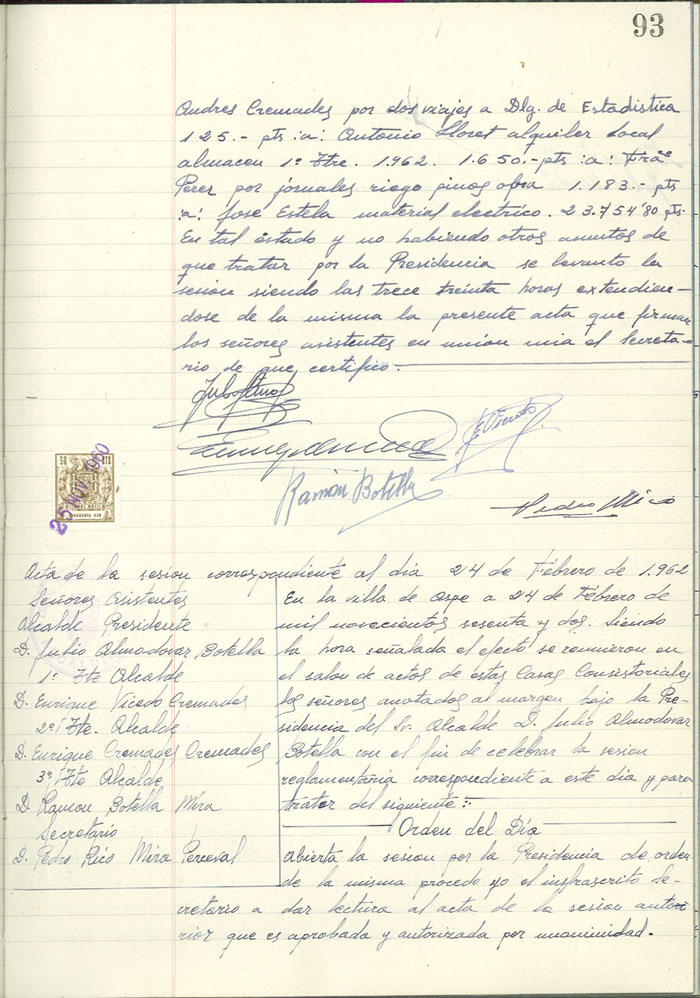 93
Andres Cremades por dos viajes a Dlg. de Estadistica
125.- pts :a: Antonio Lloret alquiler local
almacen 1º Ttre. 1.962. 1.650.- pts :a: Fraᶜᵒ
Perez por jornales riego pinos obra 1.183.- pts
:a: Jose Estela material electrico. 23.754'80 pts.
En tal estado y no habiendo otros asuntos de
que tratar por la Presidencia se levanto la
sesion siendo las trece treinta horas extendien-
dose de la misma la presente acta que firman
los señores asistentes en union mia el Secreta-
rio de que certifico.
E. Vicedo
Ramón Botella
Pedro Rico
50 PTS
25 NOV 1960
Acta de la sesion correspondiente al dia 24 de Febrero de 1.962
Señores Asistentes
Alcalde Presidente
D. Julio Almodovar Botella
1º Tte Alcalde
D. Enrique Vicedo Cremades
2º Tte. Alcalde
D. Enrique Cremades Cremades
3º Tte Alcalde
D. Ramon Botella Mira
Secretario
D. Pedro Rico Mira Perceval
En la villa de Aspe a 24 de Febrero de
mil novecientos sesenta y dos. Siendo
la hora señalada el efecto se reunieron en
el salon de actos de estas Casas Consistoriales
los señores anotados al margen bajo la Pre-
sidencia del Sr. Alcalde D. Julio Almodovar
Botella con el fin de celebrar la sesion
reglamentaria correspondiente a este dia y para
tratar del siguiente :-:
Orden del Día
Abierta la sesion por la Presidencia de orden
de la misma procedo yo el infrascrito Se-
cretario a dar lectura al acta de la sesion ante-
rior que es aprobada y autorizada por unanimidad.-